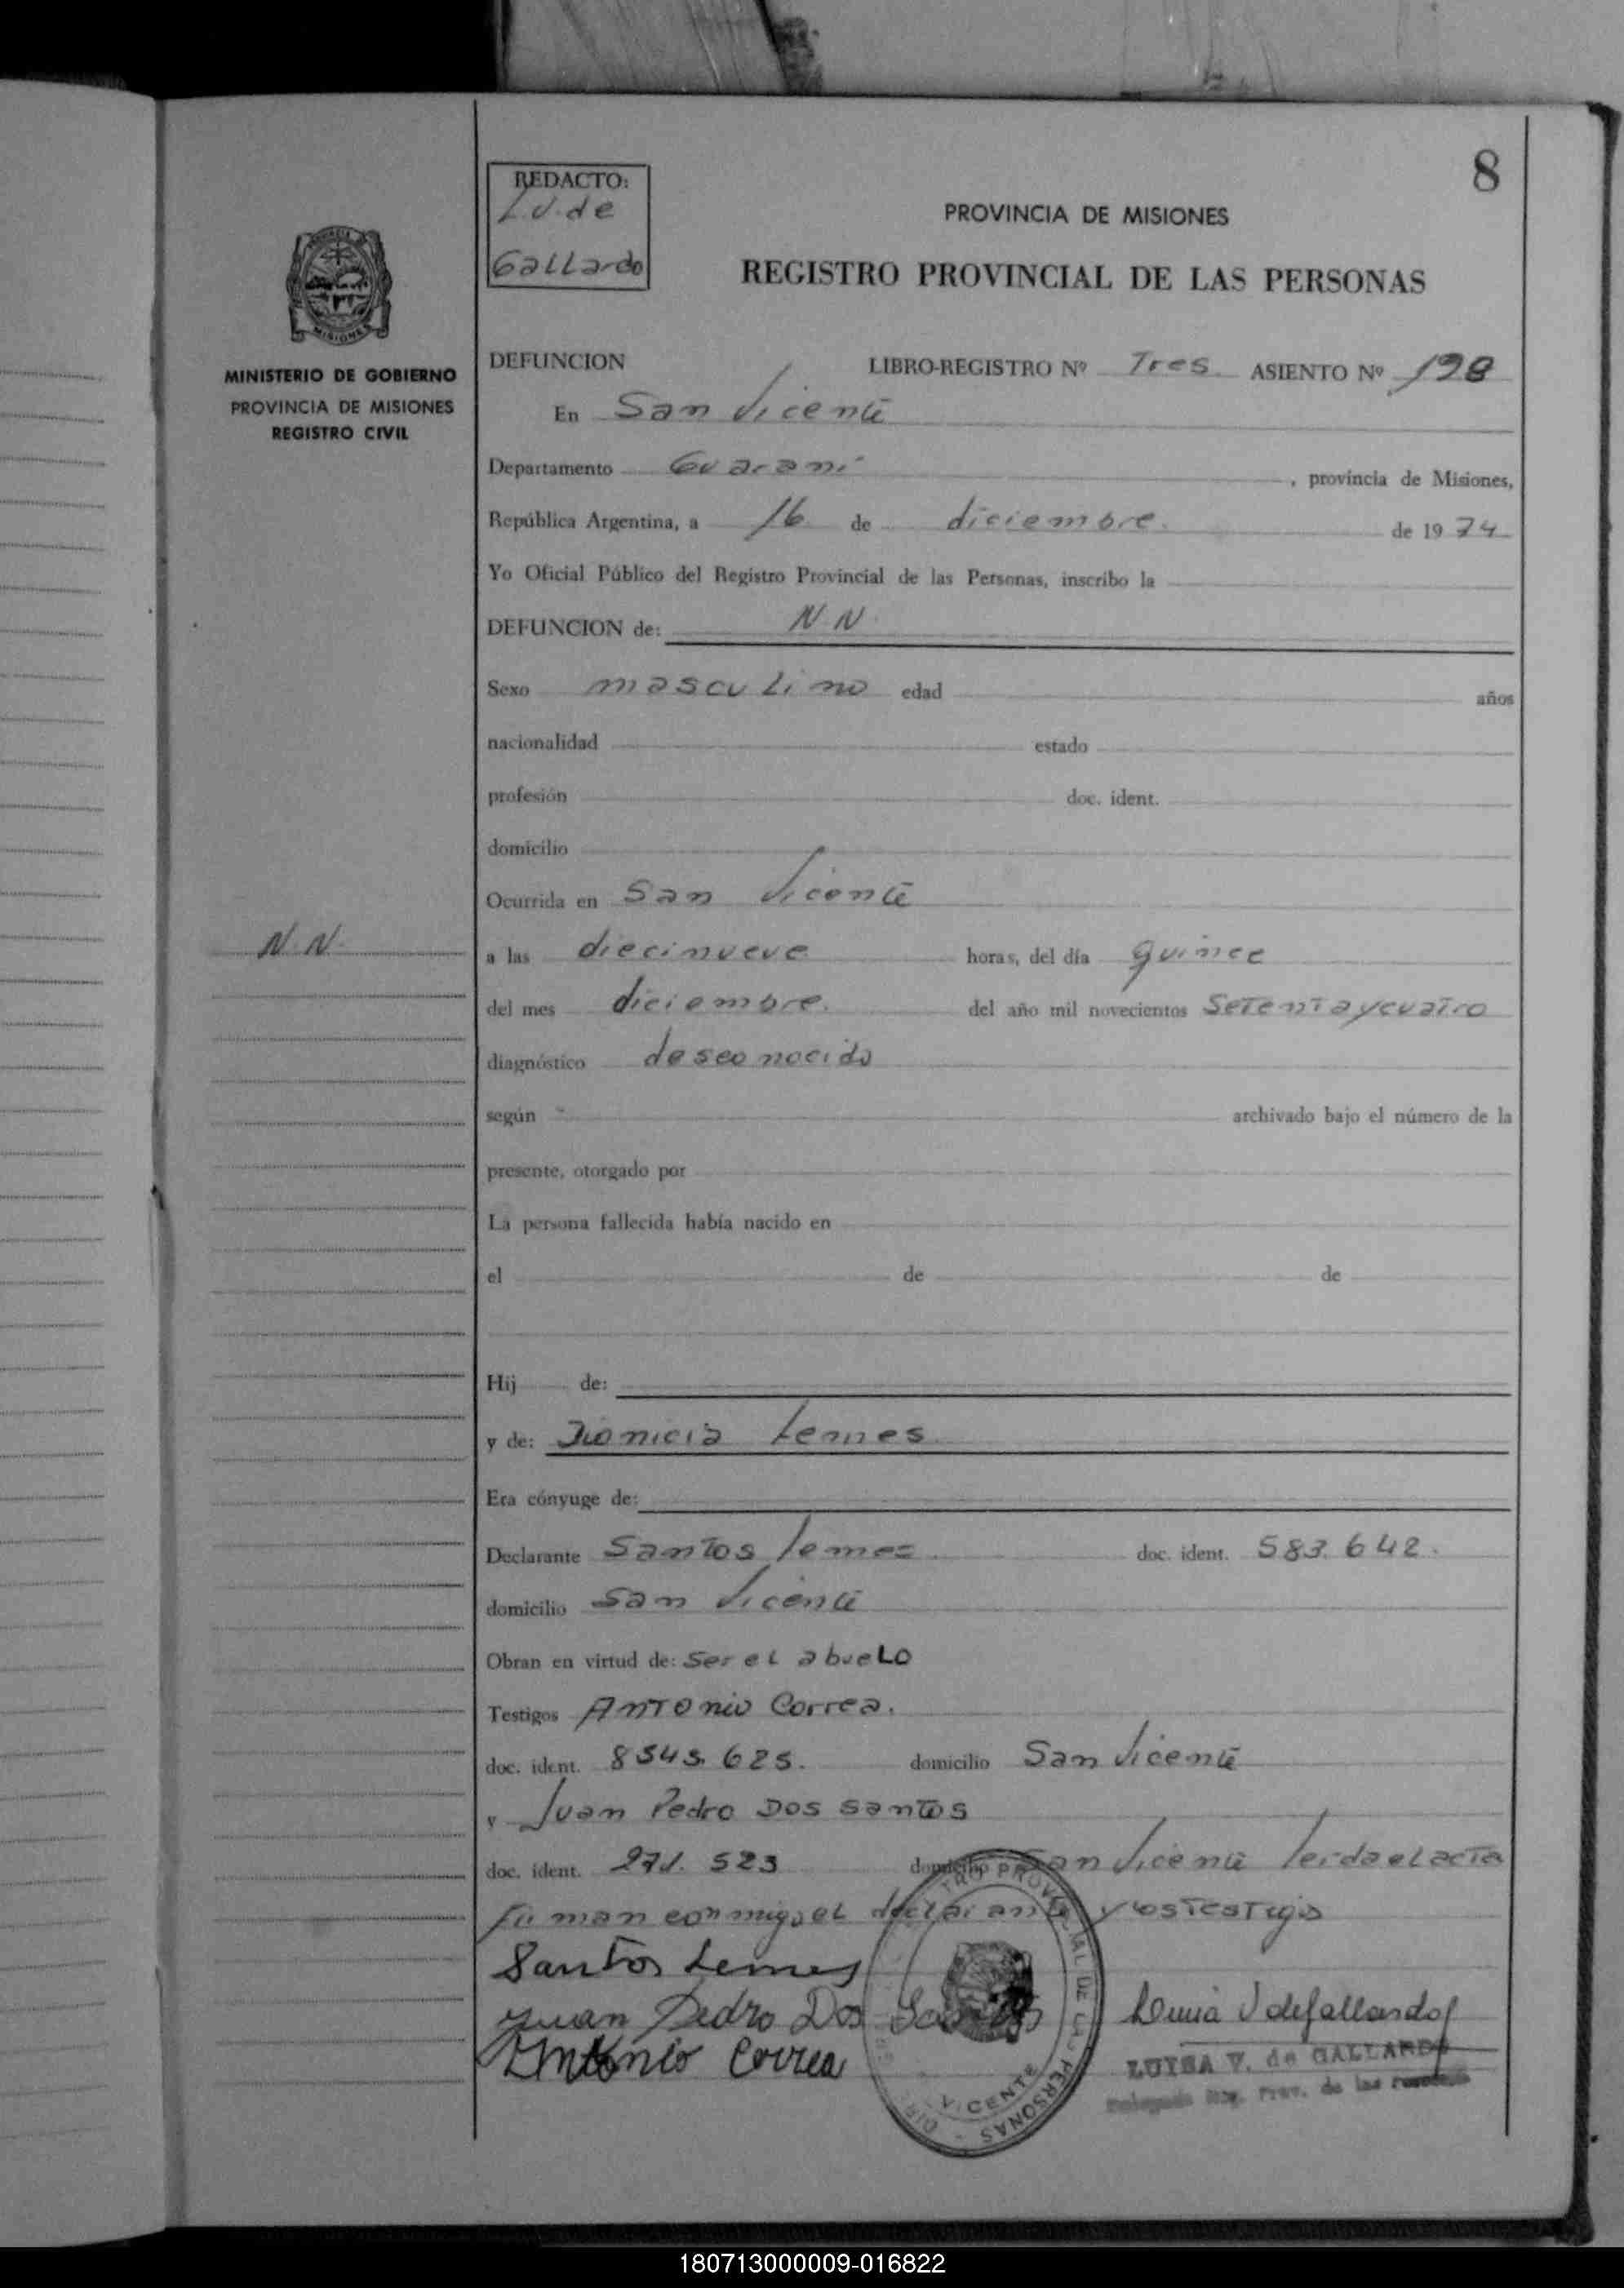 8
REDACTO:
L.V. de
Gallardo
PROVINCIA DE MISIONES
REGISTRO PROVINCIAL DE LAS PERSONAS
MISIONES
MINISTERIO DE GOBIERNO
PROVINCIA DE MISIONES
REGISTRO CIVIL
DEFUNCION LIBRO-REGISTRO Nº Tres ASIENTO Nº 198
En San Vicente
Departamento Guaraní , provincia de Misiones,
República Argentina, a 16 de diciembre de 1974
Yo Oficial Público del Registro Provincial de las Personas, inscribo la
DEFUNCION de: N.N.
Sexo masculino edad años
nacionalidad estado
profesión doc. ident.
domicilio
Ocurrida en San Vicente
N.N.
a las diecinueve horas, del día quince
del mes diciembre. del año mil novecientos setentaycuatro
diagnóstico desconocido
según archivado bajo el número de la
presente, otorgado por
La persona fallecida había nacido en
el de de
Hij de:
y de: Dionicia Lemes
Era cónyuge de:
Declarante Santos Lemes doc. ident. 583.642.
domicilio San Vicente
Obran en virtud de: ser el abuelo
Testigos Antonio Correa.
doc. ident. 8543.625. domicilio San Vicente
y Juan Pedro Dos Santos
doc. ident. 271.523 domicilio San Vicente leida el acta
firman conmigo el declarante y los testigos
Santos Lemes
Juan Pedro Dos Santos
Antonio Correa
LUISA V. de GALLARDO
Delegada Reg. Prov. de las Personas
VICENTE
180713000009-016822